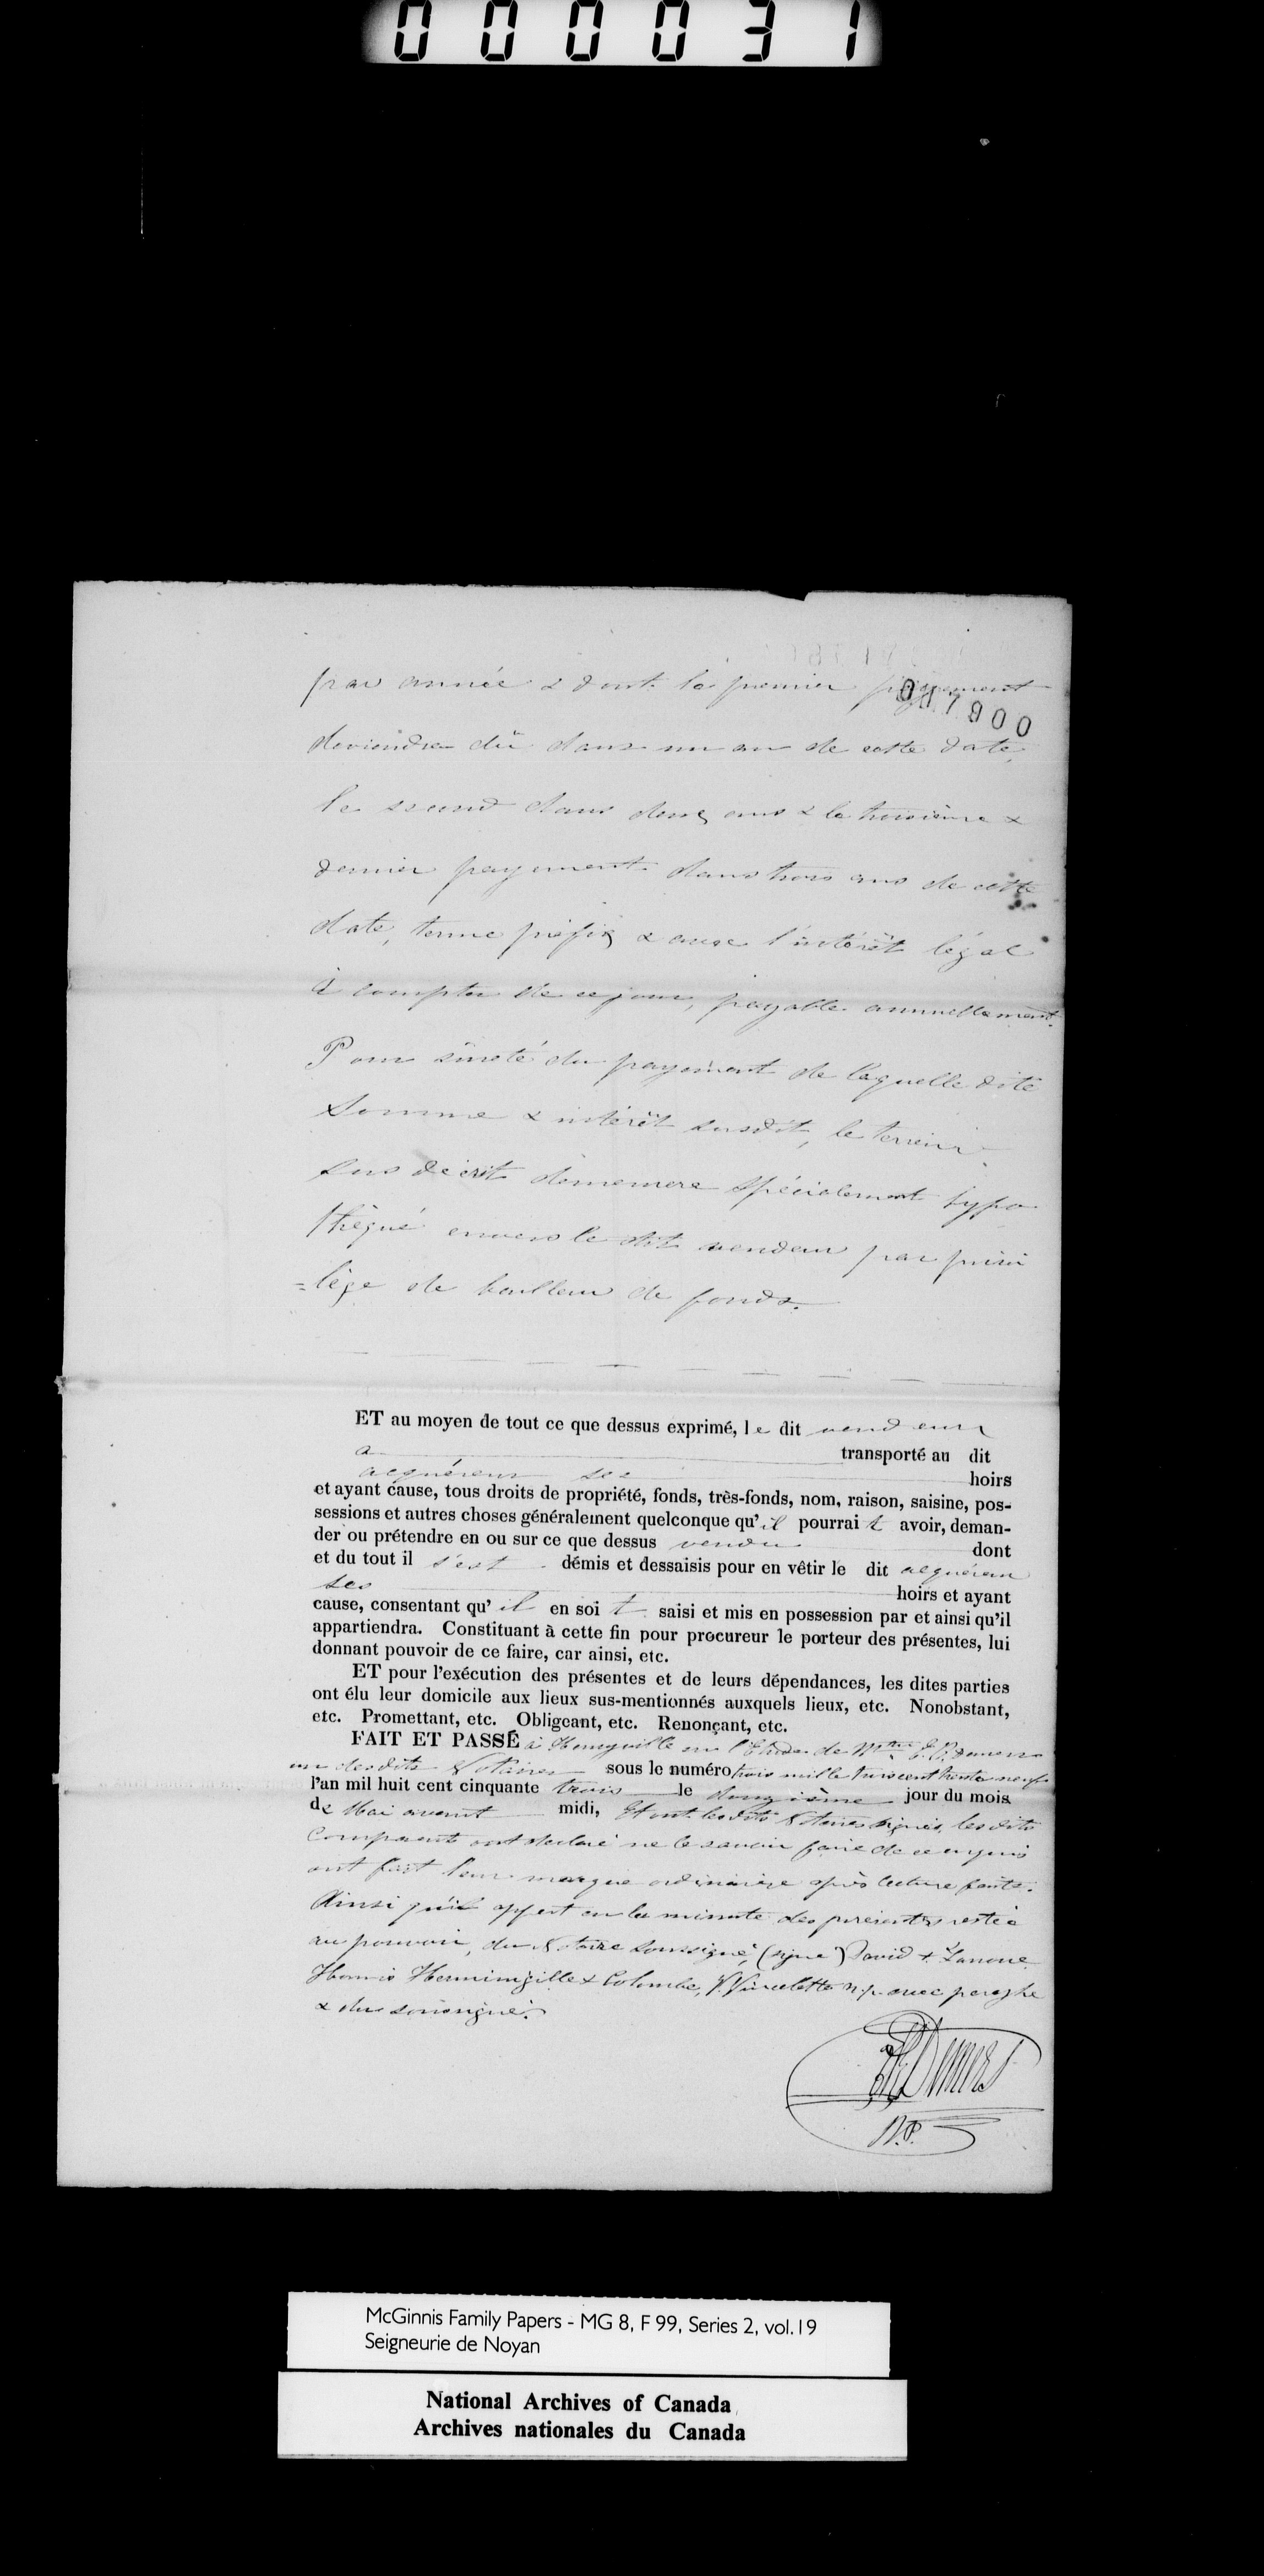 000031
par année & dont le premier payement
007900
deviendra dû dans un an de cette date,
le second dans deux ans & le troisième &
dernier payement dans trois ans de cette
date, terme préfix & avec l'intérêt légal
à compter de ce jour, payable annuellement.
Pour sûreté du payement de laquelle dite
Somme & intérêt susdit, le terrein
sus décrit demeure spécialement hypo
théqué envers le dit vendeur par privi
=lège de bailleur de fonds.
ET au moyen de tout ce que dessus exprimé, le dit vendeur
a transporté au dit
acquéreur ses hoirs
et ayant cause, tous droits de propriété, fonds, très-fonds, nom, raison, saisine, pos-
sessions et autres choses généralement quelconque qu'il pourrait avoir, deman-
der ou prétendre en ou sur ce que dessus vendu dont
et du tout il s'est démis et dessaisis pour en vêtir le dit acquéreur
ses hoirs et ayant
cause, consentant qu'il en soit saisi et mis en possession par et ainsi qu'il
appartiendra. Constituant à cette fin pour procureur le porteur des présentes, lui
donnant pouvoir de ce faire, car ainsi, etc.
ET pour l'exécution des présentes et de leurs dépendances, les dites parties
ont élu leur domicile aux lieux sus-mentionnés auxquels lieux, etc. Nonobstant,
etc. Promettant, etc. Obligeant, etc. Renonçant, etc.
FAIT ET PASSÉ à Henryville en l'Etude de Mtre E. P. Demers
un desdits Notaires sous le numéro trois mille trois cent trente neuf
l'an mil huit cent cinquante trois le douzième jour du mois
de Mai avant midi, Et ont lesdits Notaires signés, les dits
Comparants ont déclaré ne le savoir faire de ce enquis
ont fait leur marque ordinaire après lecture faite.
Ainsi qu'il appert en la minute des présentes restée
au pouvoir, du Notaire Soussigné, (signé) David + Lanoue
Hermimigille + Colombe, Vincelette n.p. avec paraphe
& du soussigné.
Demers
N.P.
McGinnis Family Papers - MG 8, F 99, Series 2, vol.19
Seigneurie de Noyan
National Archives of Canada
Archives nationales du Canada